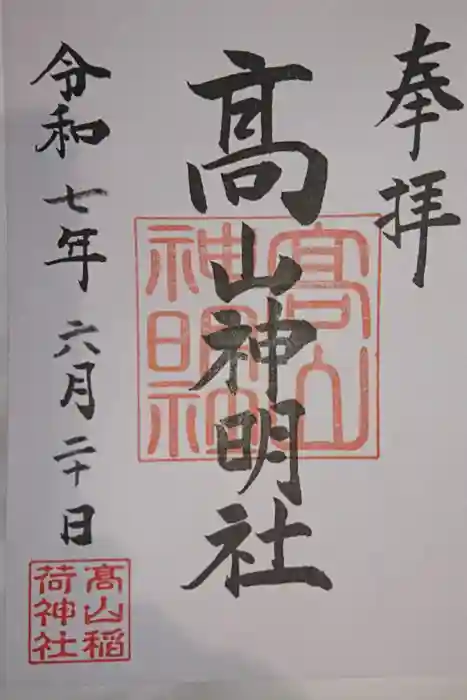 奉拝
髙山神明社
高山神明社
令和七年六月二十日
高山稲荷神社